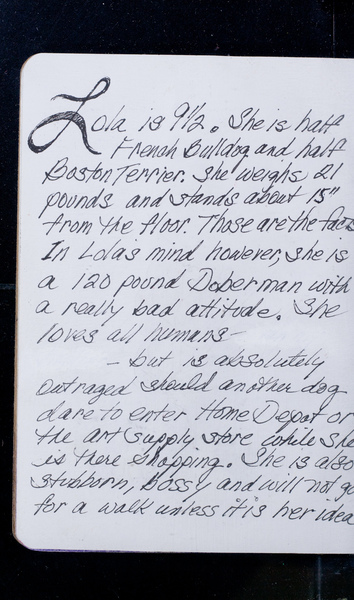 Lola is 9½. She is half
French Bulldog and half
Boston Terrier. She weighs 21
pounds and stands about 15"
from the floor. Those are the facts
In Lola's mind however, she is
a 120 pound Doberman with
a really bad attitude. She
loves all humans -
- but is absolutely
outraged should another dog
dare to enter Home Depot or
the art supply store while she
is there shopping. She is also
stubborn, bossy and will not go
for a walk unless it is her idea